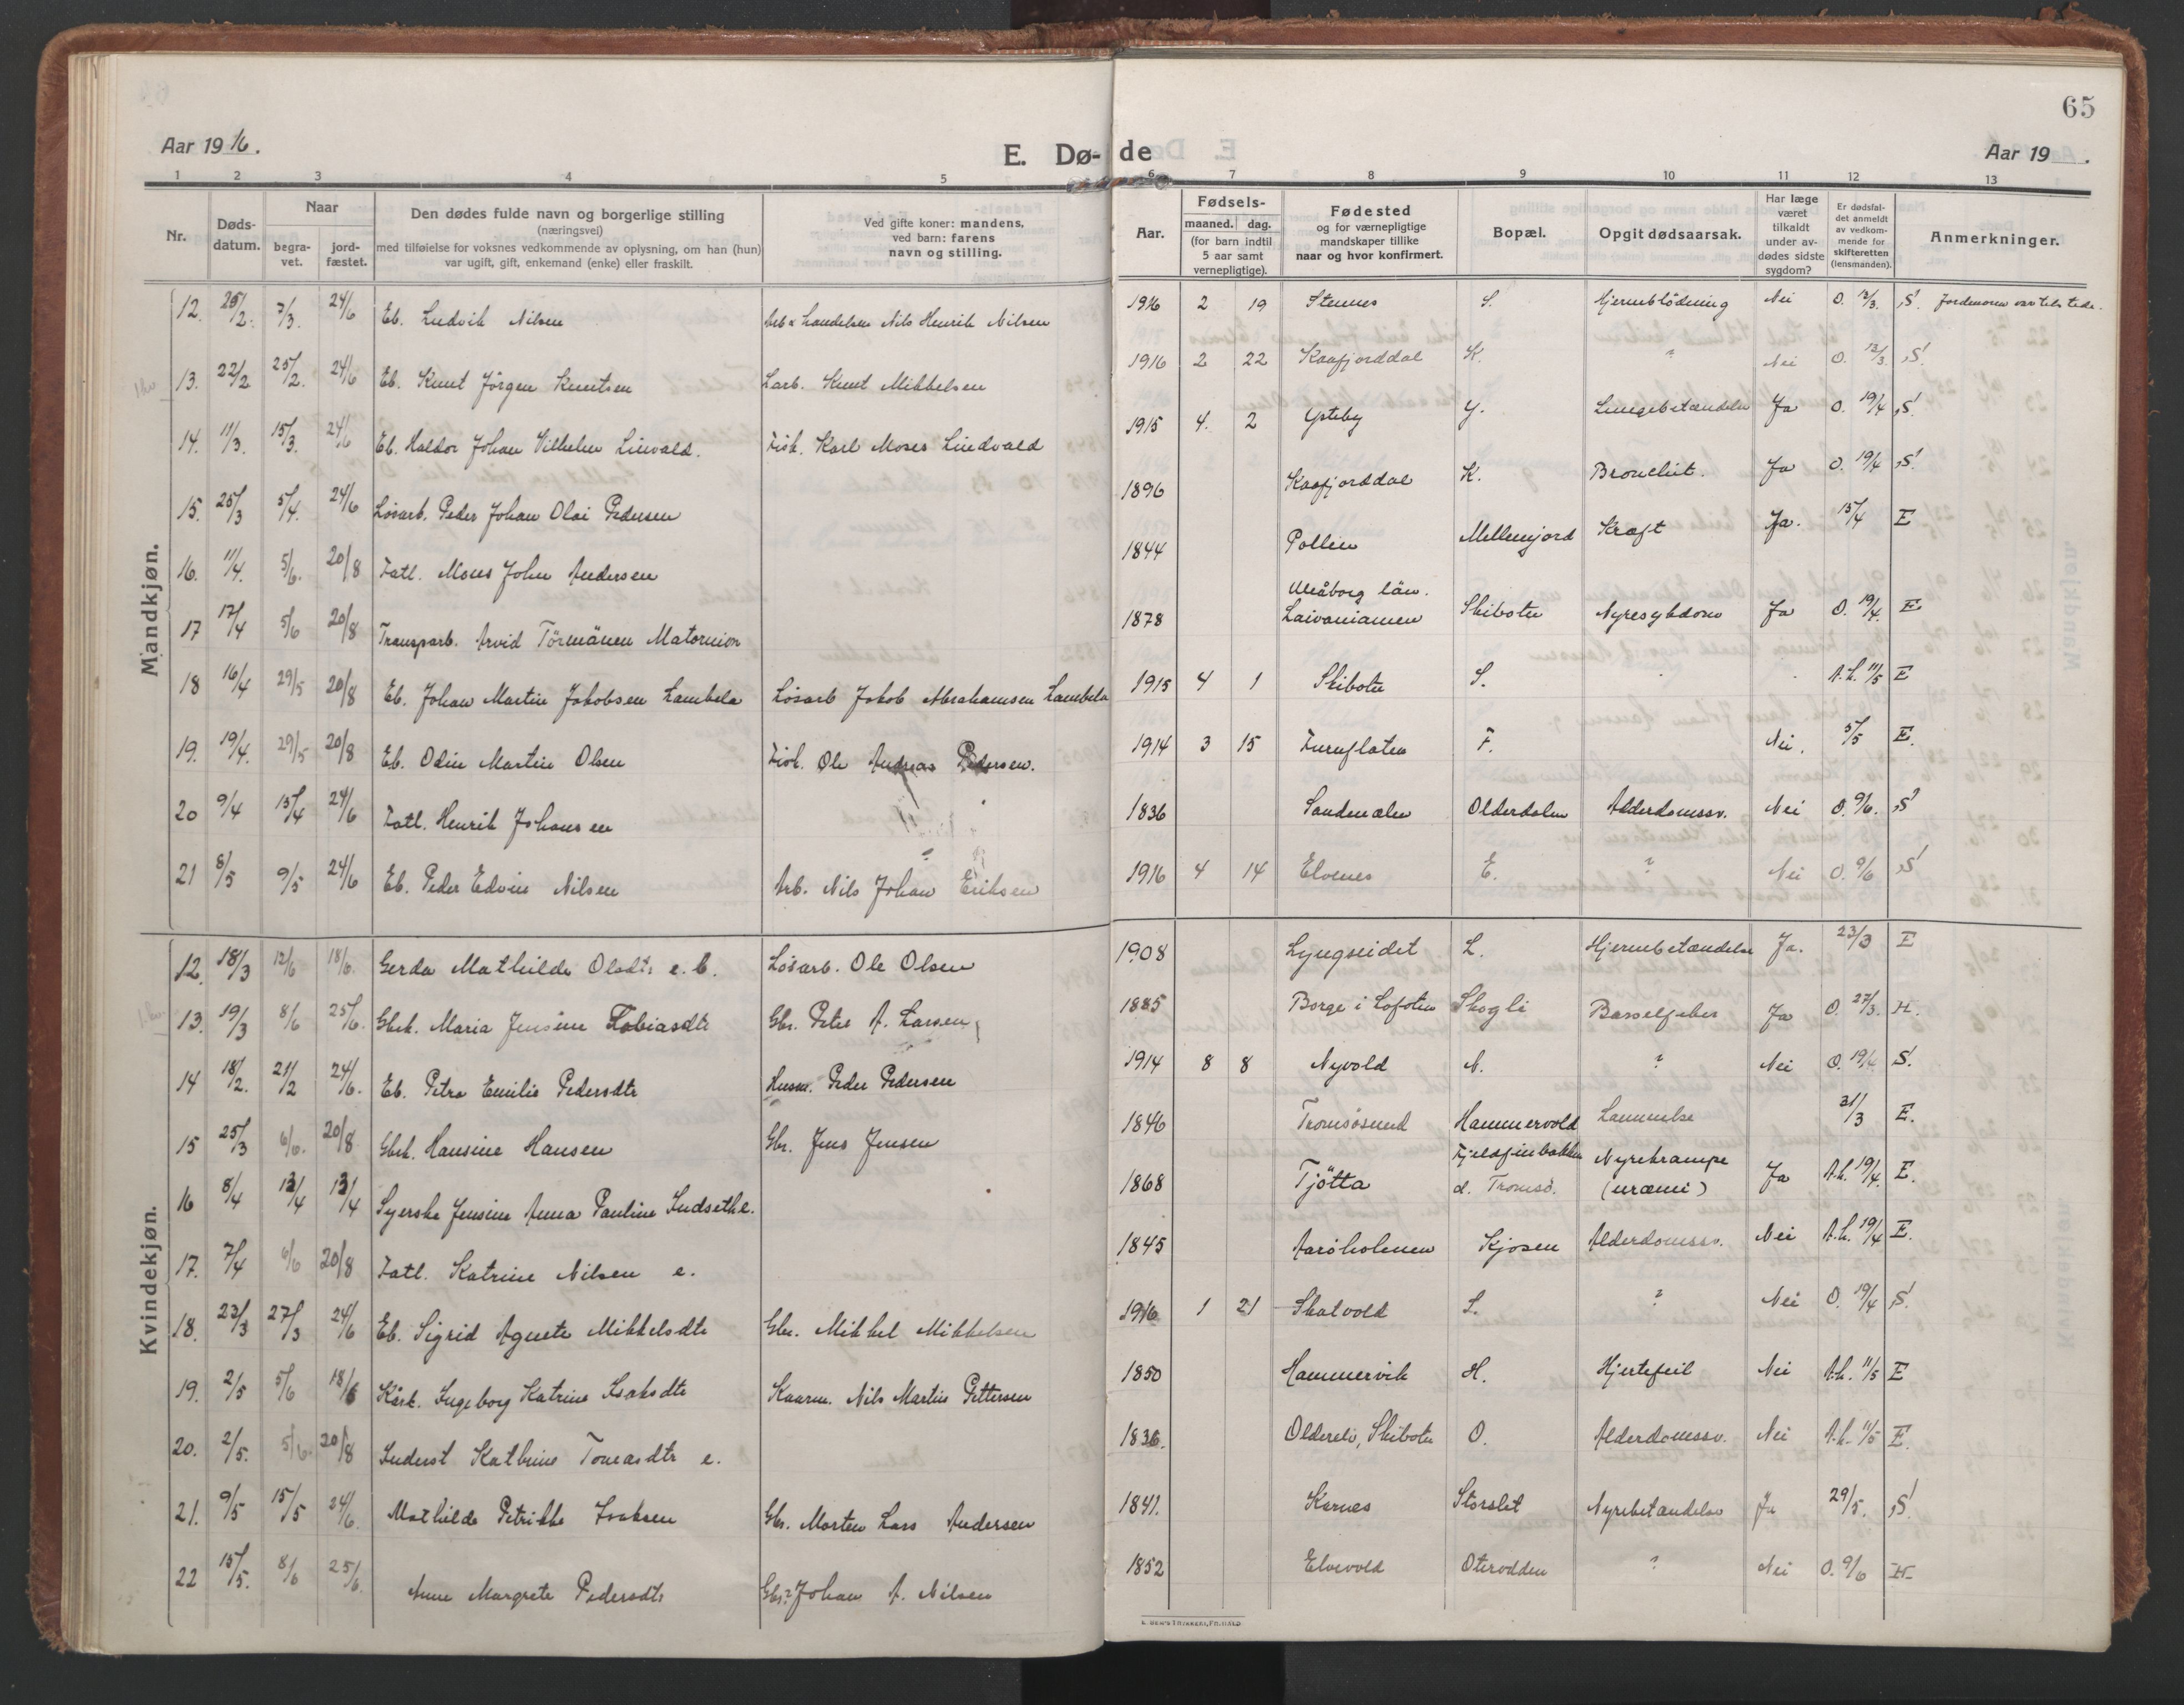 65
Aar 1916.
E. Dø- de
Aar 19 .
1 2 3 4 5 6 7 8 9 10 11 12 13
Nr.
Døds-datum.
Naar
begra-vet.
jord-fæstet.
Den dødes fulde navn og borgerlige stilling
(næringsvei)
med tilføielse for voksnes vedkommende av oplysning, om han (hun)
var ugift, gift, enkemand (enke) eller fraskilt.
Ved gifte koner: mandens,
ved barn: farens
navn og stilling.
Aar.
Fødsels-
maaned. dag.
(for barn indtil
5 aar samt
vernepligtige).
Fødested
og for værnepligtige
mandskaper tillike
naar og hvor konfirmert.
Bopæl.
Opgit dødsaarsak.
Har læge
været
tilkaldt
under av-
dødes sidste
sygdom?
Er dødsfal-
det anmeldt
av vedkom-
mende for
skifteretten
(lensmanden).
Anmerkninger.
Mandkjøn.
12. 25/2. 7/3. 24/6 Eb. Ludvik Nilsen Arb. & Nils Henrik Nilsen 1916 2 19 Stennes S. Hjerneblödning Nei O. 13/3. S. Jordmoren var tilstede.
13. 22/2 25/2. 24/6 Eb. Knut Jörgen Knutsen Larb. Knut Mikkelsen 1916 2 22 Kaafjorddal K. ? Nei O. 13/3. S.
14. 11/3. 15/3. 24/6 Eb. Haldor Johan Vilhelm Linvald. Fisk. Karl Moses Lindvald 1915 4. 2 Ysteby Y. Lungebetændelse Ja O. 19/4 S.
15. 25/3 5/4. 24/6 Løsarb. Peder Johan Olai Pedersen 1896 Kaafjorddal K. Bronchit. Ja O. 19/4 S.
16. 11/4. 5/6. 20/8 Fatl. Mons John Andersen 1844 Pollen Mellemjord Kræft Ja. 15/4 E
17 17/4 5/6 20/8 Transparb. Arvid Törmänen Matornion 1878 Uleåborg län. Laivaniamen Skibotn Nyresykdom Ja O. 19/4. E
18 16/4 29/5 20/8 Eb. Johan Martin Jakobsen Lambela Løsarb Jakob Abrahamsen Lambela 1915 4 1 Skibotn S. A.L. 11/5 E
19. 19/4. 29/5 20/8 Eb. Odin Martin Olsen Fisk. Ole Andreas Pedersen. 1914 3 15 Furuflaten F. Nei. 5/5 E.
20 9/4 15/4 24/6 Fatl. Henrik Johansen 1836 Sandenælen Olderdalen Alderdomssv. Nei O. 9/6. S
21 8/5 9/5 24/6 Eb. Peder Edvin Nilsen Arb. Nils Johan Eriksen 1916 4 14 Elvenes E. ? Nei O. 9/6 S
Kvindekjøn.
12. 18/3 12/6 18/6. Gerda Mathilde Olsdt. e. b. Løsarb. Ole Olsen 1908 Lyngseidet L. Hjernebetændelse Ja. 23/3 E
13. 19/3 8/6 25/6. Gbrk. Maria Jensine Tobiasdt. Gbr. Peter A. Larsen 1885 Borge i Lofoten Skogli Barselfeber Ja O. 27/3. H.
14 18/2. 21/2 24/6. Eb. Petra Emilie Pedersdt. Husm. Peder Pedersen 1914 8 8 Nyvold N. ? Nei O. 19/4 S.
15 25/3 6/6. 20/8 Gbrk. Hansine Hansen Gbr. Jens Jensen 1846 Tromsösund Hammervold Lammelse 31/3 E.
16 8/4 13/4 13/4 Syerske Jensine Anna Pauline Indseth e. 1868 Tjötta Fjeldfinbakken d. Tromsö. Nyrekrampe (uræmi) Ja A.L. 19/4. E.
17. 7/4 6/6 20/8 Fatl. Katrine Nilsen e. 1845 Aaröholmen Kjosen Alderdomssv. Nei A.L. 19/4 E.
18. 23/3 27/3 24/6 Eb. Sigrid Agnete Mikkelsdt. Gbr. Mikkel Mikkelsen 1916 1 21 Skatvold S. ? Nei O. 19/4 S.
19. 2/5 5/6 18/6 Kårk. Ingeborg Katrine Isaksdt. Kaarm. Nils Martin Pettersen 1850 Hammervik H. Hjertefeil Nei A.L. 11/5 E
20. 2/5. 5/6. 20/8 Inderst Kathrine Tomasdt. e. 1836. Olderelv, Skibotn O. Alderdomssv. Nei A.L. 11/5 E.
21. 9/5 15/5 24/6. Mathilde Petrikke Isaksen Gbr. Morten Lars Andersen 1841. Karnes Storslet Nyrebetændelse Ja 29/5. S.
22 15/5. 8/6 25/6. Anne Margrete Pedersdt. Gbr? Johan A. Nilsen 1852 Elvevold Oterodden ? Nei O. 9/6 H